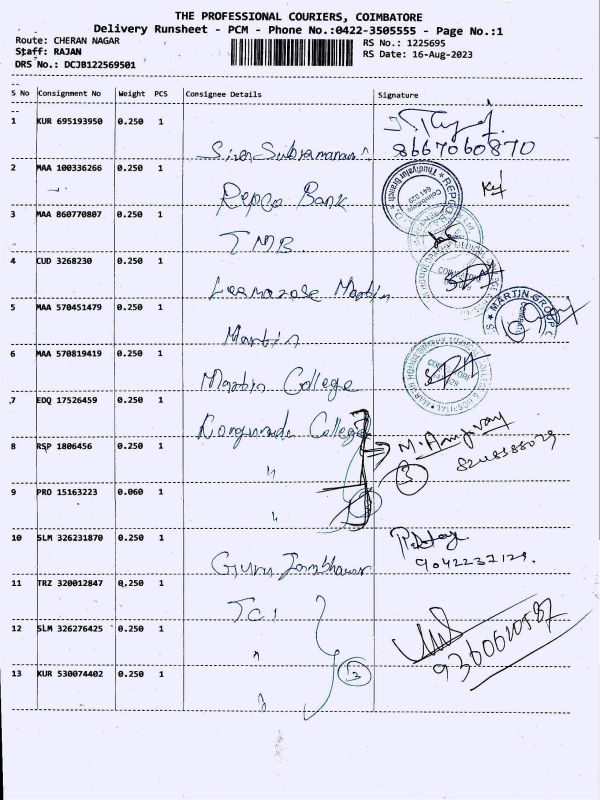 THE PROFESSIONAL COURIERS, COIMBATORE
Delivery Runsheet - PCM - Phone No.:0422-3505555 - Page No.:1
Route: CHERAN NAGAR RS No.: 1225695
Staff: RAJAN RS Date: 16-Aug-2023
DRS No.: DCJB122569501
S No Consignment No Weight PCS Consignee Details Signature
1 KUR 695193950 0.250 1
8667060870
2 MAA 100336266 0.250 1
Repco Bank
3 MAA 860770807 0.250 1
TMB
4 CUD 3268230 0.250 1
Martin
5 MAA 570451479 0.250 1 MARTIN GROUP
Martin
6 MAA 570819419 0.250 1
Martin College
7 EDQ 17526459 0.250 1
Kongunadu College
8 RSP 1806456 0.250 1
" 3
9 PRO 15163223 0.060 1
"
10 SLM 326231870 0.250 1
Guru Jambhawar 9042237129.
11 TRZ 320012847 0.250 1
TCI
12 SLM 326276425 0.250 1
" 9360610587
13 KUR 530074402 0.250 1 3
"